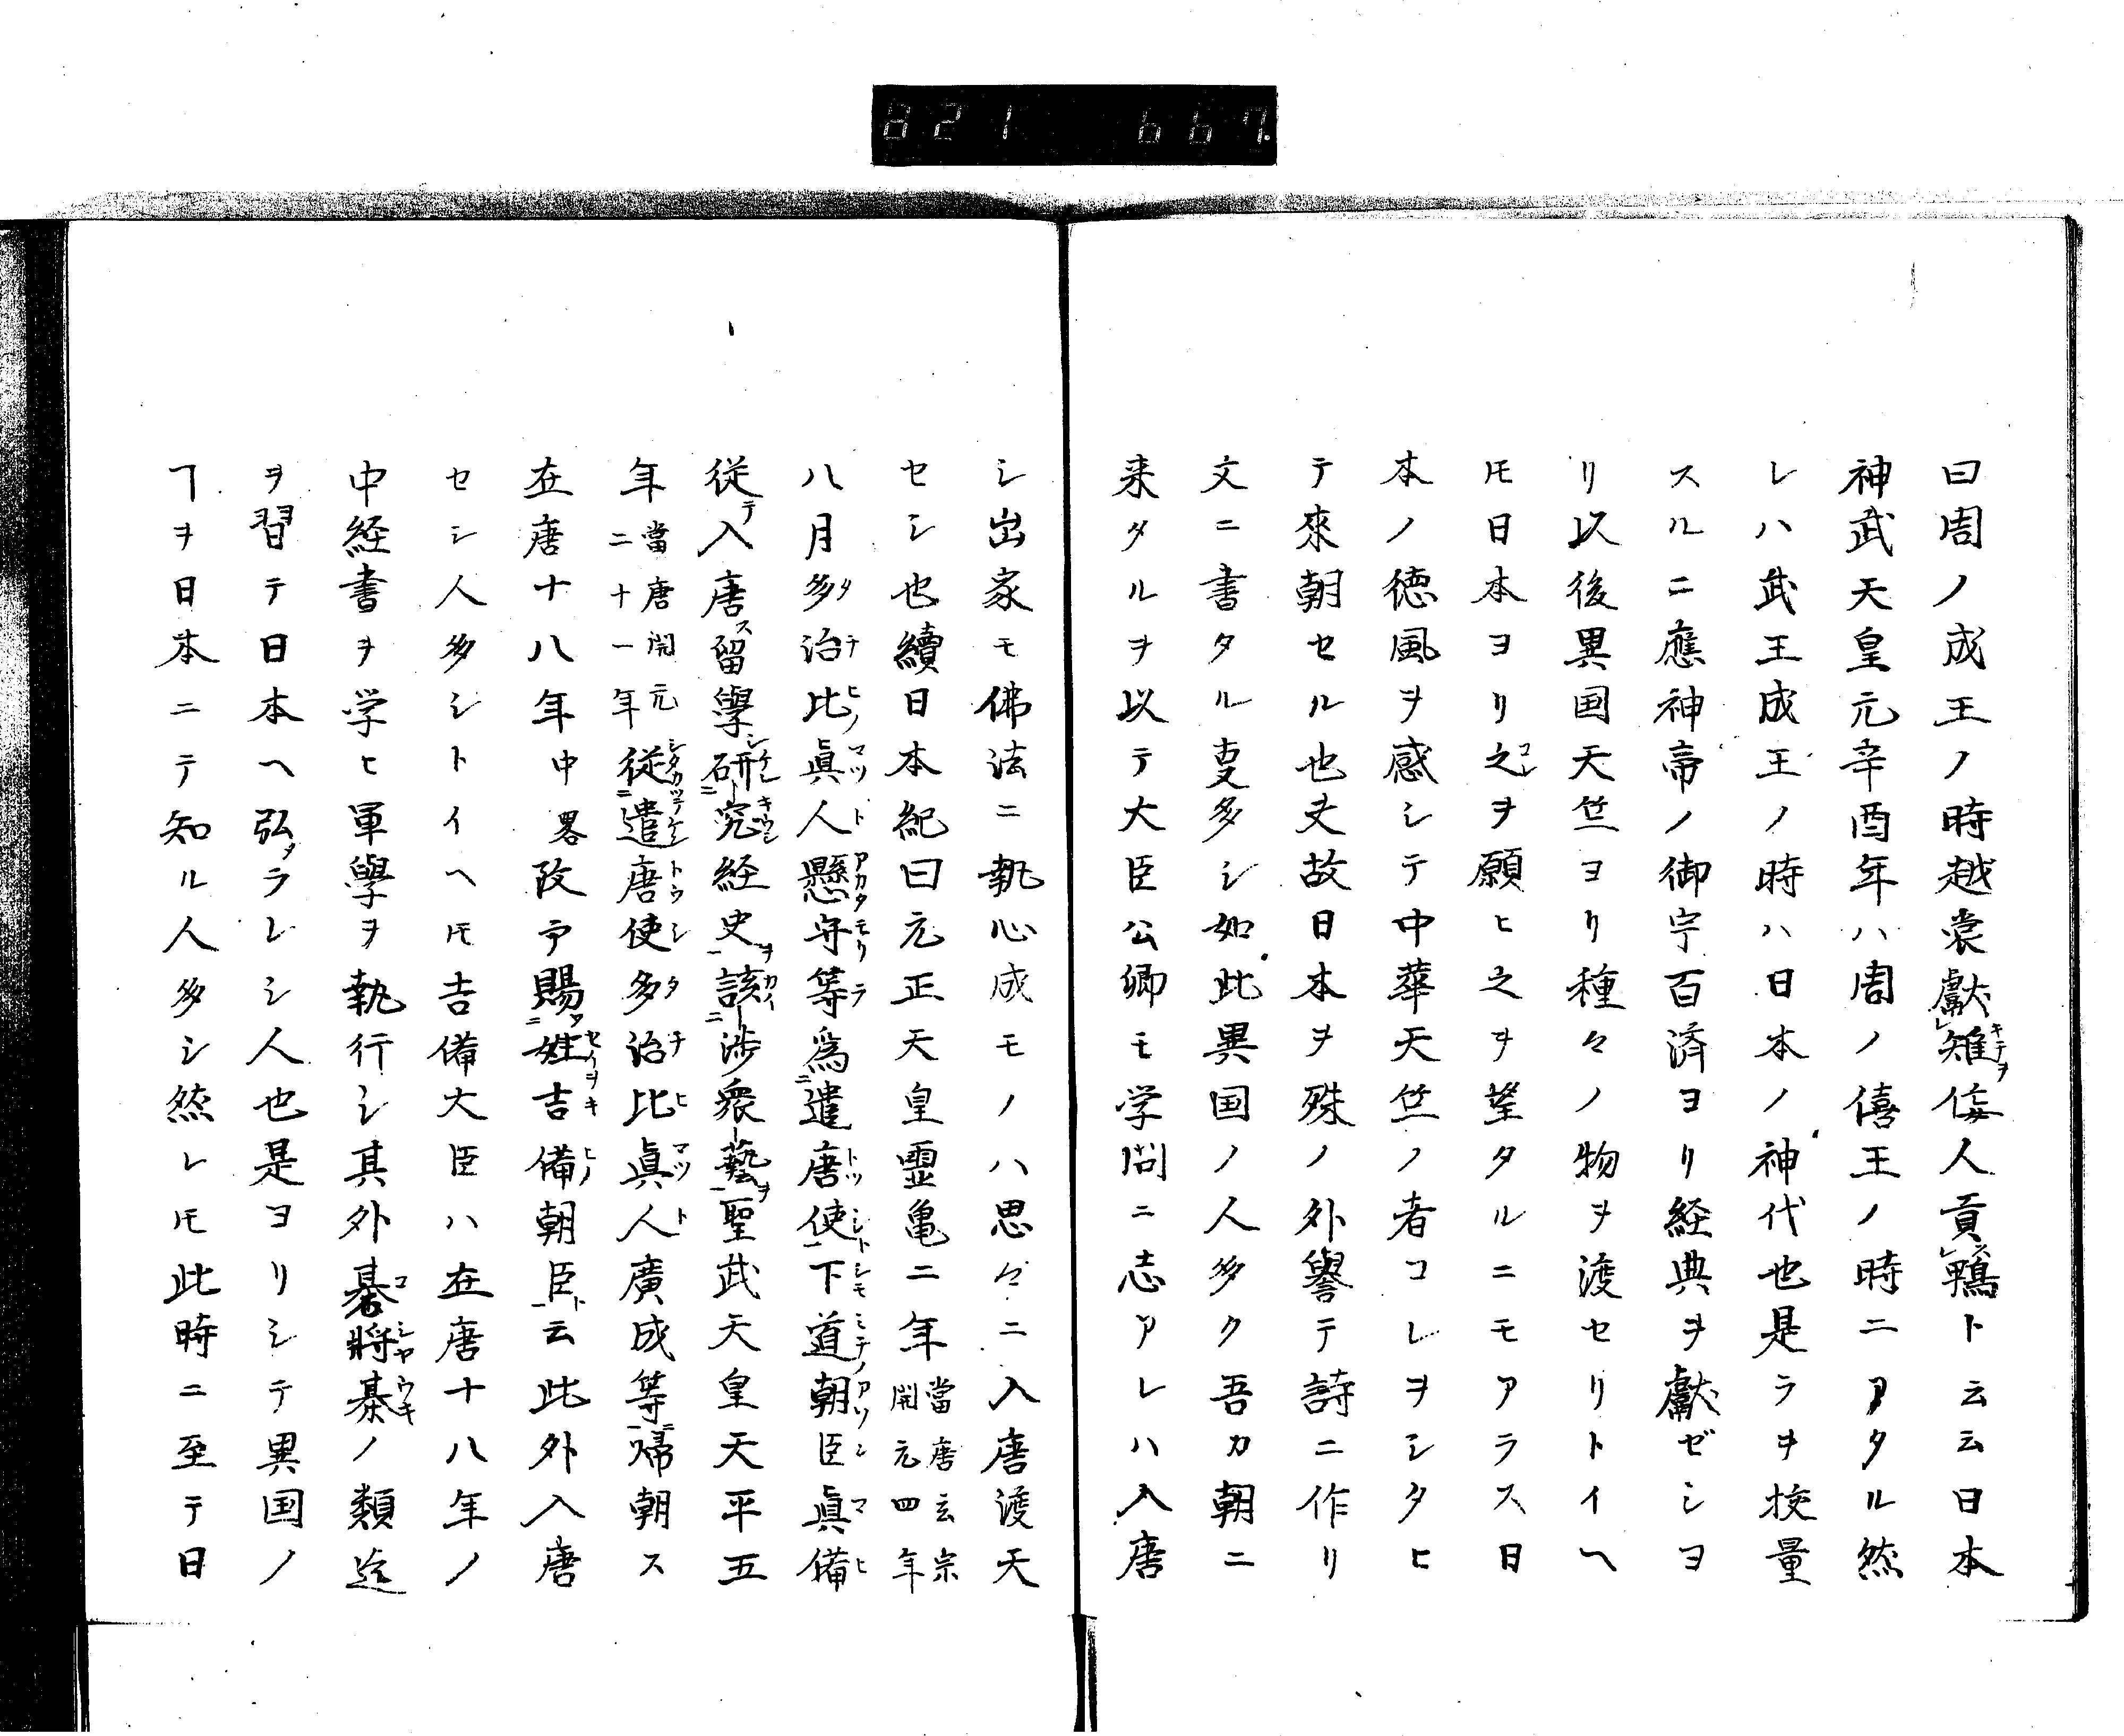 821 667.
曰周ノ成王ノ時越裳獻雉倭人貢鴨ト云云日本
神武天皇元辛酉年ハ周ノ僖王ノ時ニアタル然
レハ武王成王ノ時ハ日本ノ神代也是ラヲ挍量
スルニ應神帝ノ御宇百済ヨリ経典ヲ獻ゼシヨ
リ以後異国天竺ヨリ種々ノ物ヲ渡セリトイヘ
𪜈日本ヨリ之ヲ願ヒ之ヲ望タルニモアラス日
本ノ徳風ヲ感シテ中華天竺ノ者コレヲシタヒ
テ來朝セル也夫故日本ヲ殊ノ外譽テ詩ニ作リ
文ニ書タル叓多シ如此異国ノ人多ク吾カ朝ニ
来タルヲ以テ大臣公卿モ学問ニ志アレハ入唐
シ出家モ佛法ニ執心成モノハ思々ニ入唐渡天
セシ也續日本紀曰元正天皇霊亀二年當唐玄宗開元四年
八月多治比真人懸守等為遣唐使下道朝臣真備
従テ入唐ス留學研究経史ヲ該渉衆藝ヲ聖武天皇天平五
年當唐開元二十一年従遣唐使多治比真人廣成等帰朝ス
在唐十八年中畧改テ賜姓吉備朝臣ト云此外入唐
セシ人多シトイヘ𪜈吉備大臣ハ在唐十八年ノ
中経書ヲ学ヒ軍學ヲ執行シ其外碁將棊ノ類迄
ヲ習テ日本ヘ弘メラレシ人也是ヨリシテ異国ノ
ヿヲ日本ニテ知ル人多シ然レ𪜈此時ニ至テ日